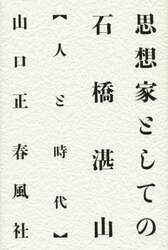 思想家としての
石橋湛山
【人と時代】
山口正 春風社